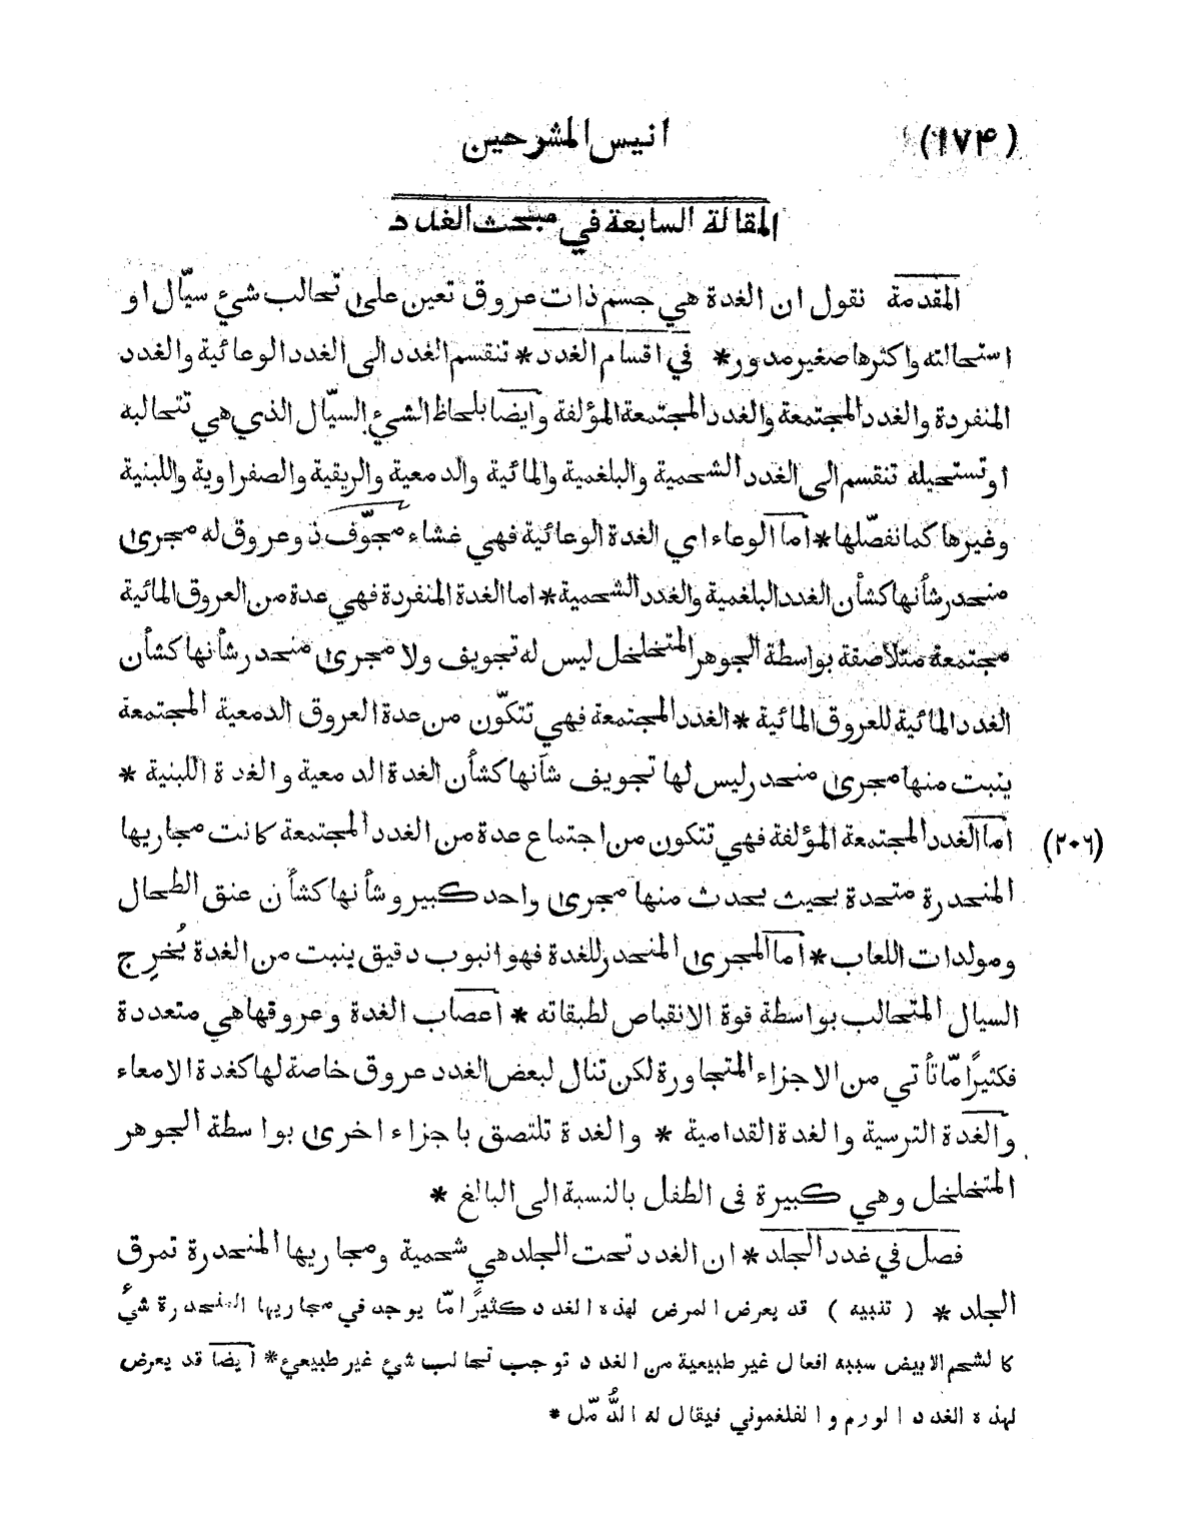 (١٧۴)
انيس المشرحين
المقالة السابعة في مبحث الغدد
المقدمة نقول ان الغدة هي جسم ذات عروق تعين على تحالب شئ سيّال او
استحالته واكثرها صغير مدور * في اقسام الغدد * تنقسم الغدد الى الغدد الوعائية والغدد
المنفردة والغدد المجتمعة والغدد المجتمعة المؤلفة وايضا بلحاظ الشئ السيّال الذي هي تتحالبه
او تستحيله تنقسم الى الغدد الشحمية والبلغمية والمائية والدمعية والريقية والصفراوية واللبنية
وغيرها كما نفصّلها * اما الوعاء اي الغدة الوعائية فهي غشاء مجوّف ذو عروق له مجرى
منحدر شأنها كشأن الغدد البلغمية والغدد الشحمية * اما الغدة المنفردة فهي عدة من العروق المائية
مجتمعة متلاصقة بواسطة الجوهر المتخلخل ليس له تجويف ولا مجرى منحدر شأنها كشأن
الغدد المائية للعروق المائية * الغدد المجتمعة فهي تتكوّن من عدة العروق الدمعية المجتمعة
ينبت منها مجرى منحدر ليس لها تجويف شأنها كشأن الغدة الدمعية والغدة اللبنية *
اما الغدد المجتمعة المؤلفة فهي تتكون من اجتماع عدة من الغدد المجتمعة كانت مجاريها
(٢٠٦)
المنحدرة متحدة بحيث يحدث منها مجرى واحد كبير وشأنها كشأن عنق الطحال
ومولدات اللعاب * اما المجرى المنحدر للغدة فهو انبوب دقيق ينبت من الغدة يُخرِج
السيال المتحالب بواسطة قوة الانقباص لطبقاته * اعصاب الغدة وعروقها هي متعددة
فكثيرًا مّا تأتي من الاجزاء المتجاورة لكن تنال لبعض الغدد عروق خاصة لها كغدة الامعاء
والغدة الترسية والغدة القدامية * والغدة تلتصق باجزاء اخرى بواسطة الجوهر
المتخلخل وهي كبيرة فى الطفل بالنسبة الى البالغ *
فصل في غدد الجلد * ان الغدد تحت الجلد هي شحمية ومجاريها المنحدرة تمرق
الجلد * ( تنبيه ) قد يعرض المرض لهذه الغدد كثيرًا مّا يوجد في مجاريها المنحدرة شئ
كالشحم الابيض سببه افعال غير طبيعية من الغدد توجب تحالب شئ غير طبيعي * ايضا قد يعرض
لهذه الغدد الورم والفلغموني فيقال له الدُّمّل *